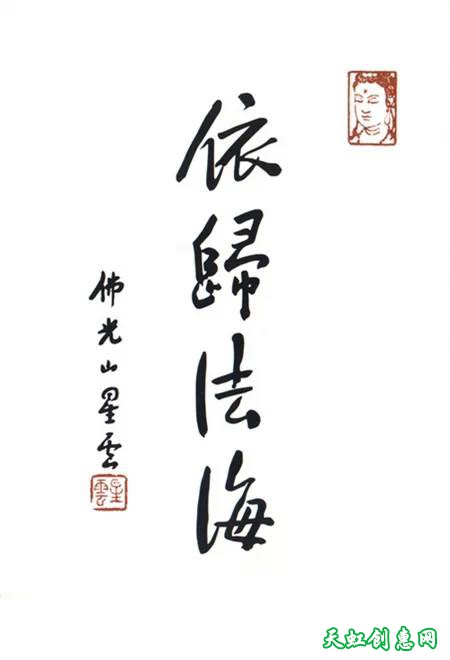 依歸法海
佛光山星雲
星雲
天虹创意网